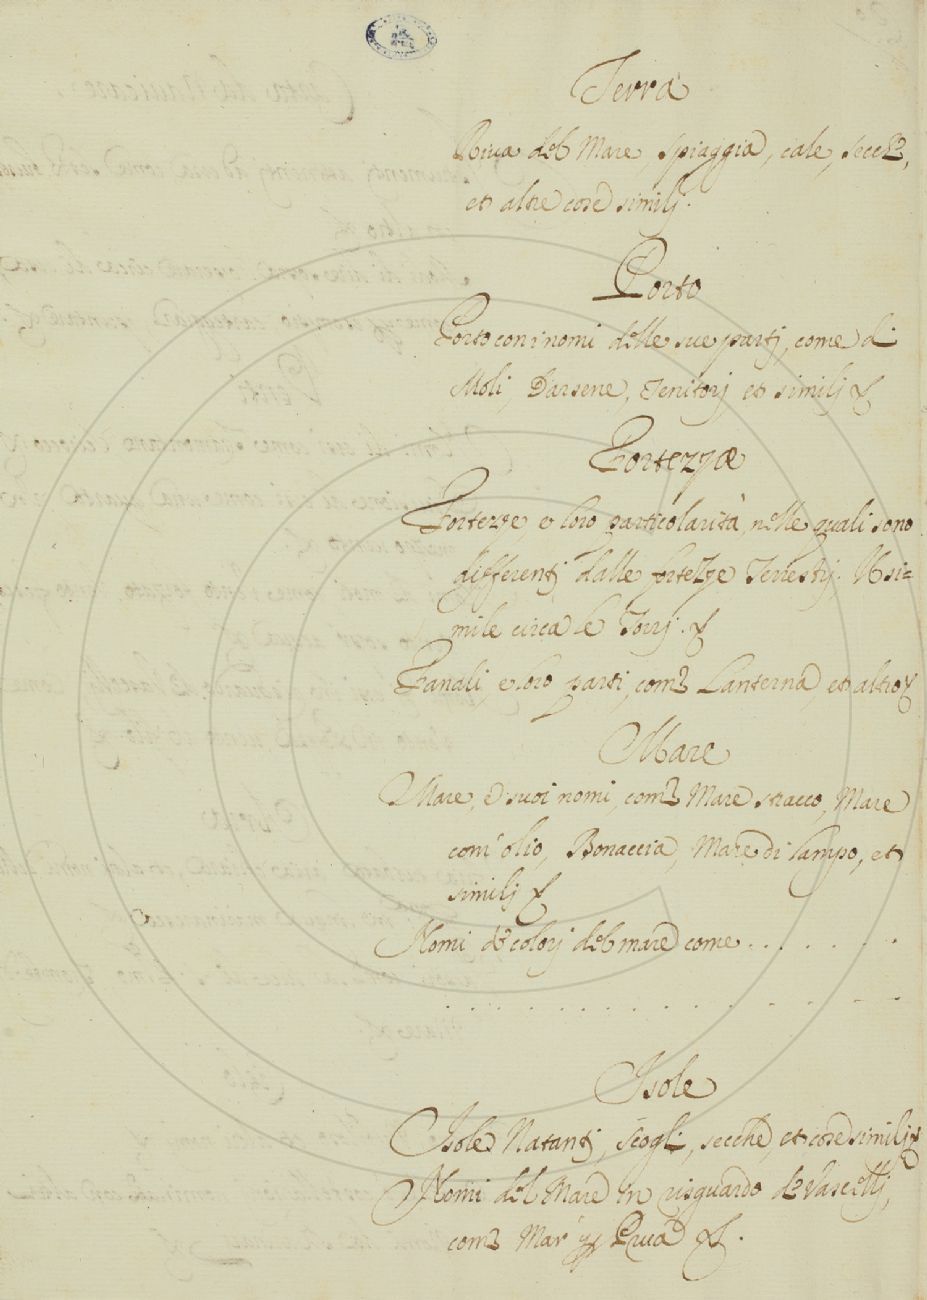 Terra
Riua del Mare spiaggia, cale, secche,
et altre cose similj.
Porto
Porto con i nomi delle sue partj, come di
Moli, Darsene, et similj
Fortezze
Fortezze, e loro particolarità, nelle quali sono
differentj dalle fortezze Terrestrj. Il si=
mile circa le Torrj.
Fanali, e loro parti, come Lanterna, et altro
Mare
Mare, e suoi nomi, come Mare stracco, Mare
com' olio, Bonaccia, Mare di lampo, et
similj
Nomi de colorj del mare come . . . . . . .
. . . . . . . . . . . . . . .
Isole
Isole Natantj, scoglj, secche, et cose similj
Nomi del Mare in risguardo de Vascellj,
come Mar